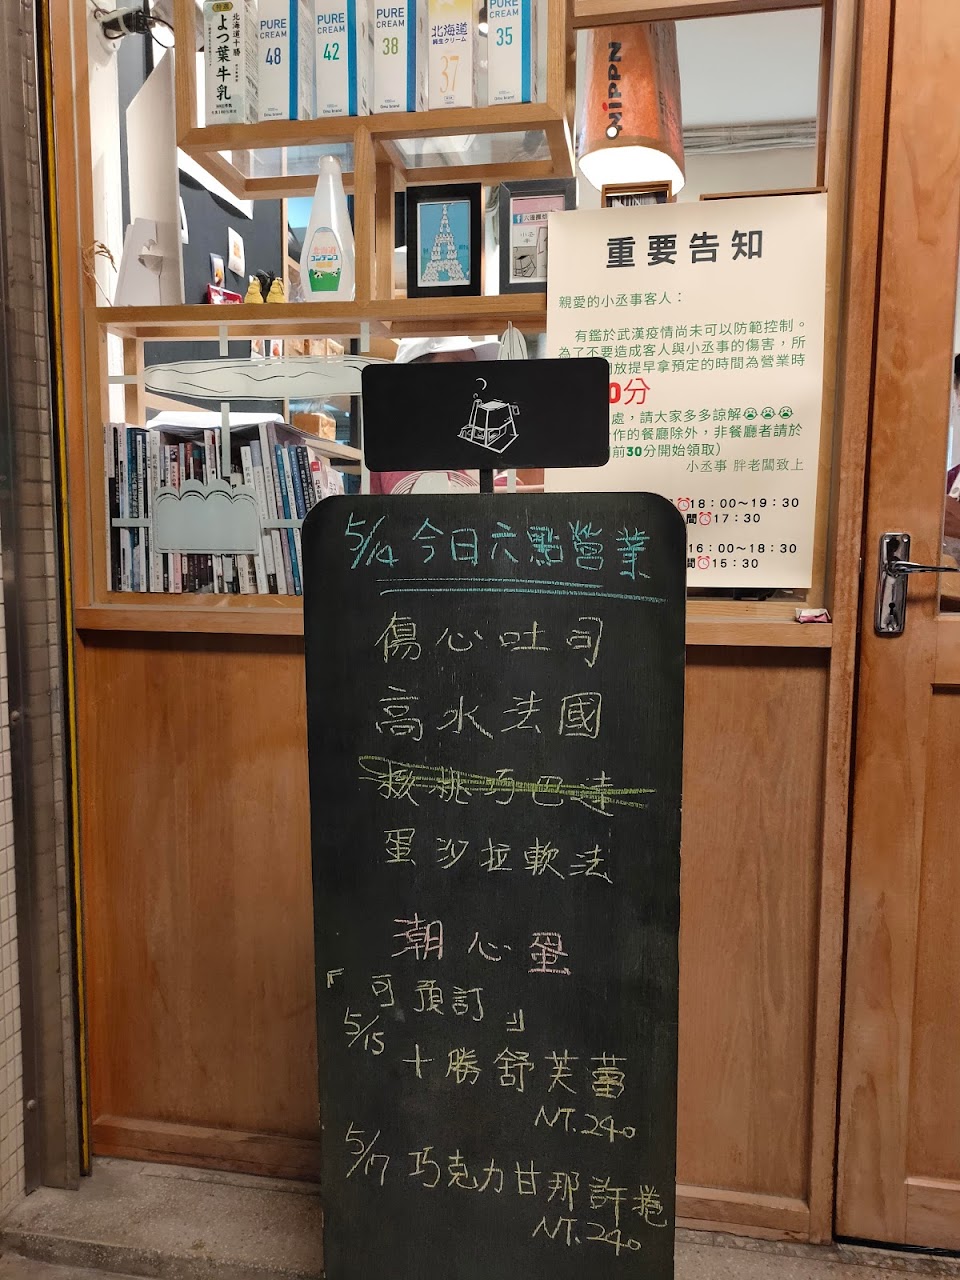 北海道十勝
よつ葉牛乳
PURE
CREAM
48
PURE
CREAM
42
PURE
CREAM
38
北海道
純生クリーム
37
PURE
CREAM
35
NIPPN
重要告知
親愛的小丞事客人：
有鑑於武漢疫情尚未可以防範控制。
為了不要造成客人與小丞事的傷害，所
放提早拿預定的時間為營業時
0分
處，請大家多多諒解😭😭😭
作的餐廳除外，非餐廳者請於
前30分開始領取）
小丞事 胖老闆致上
⏰18：00～19：30
間⏰17：30
16：00～18：30
間⏰15：30
5/14 今日六點營業
傷心吐司
高水法國
核桃巧巴達
蛋沙拉軟法
潮心蛋
『可預訂』
5/15
十勝舒芙蕾
NT.240
5/17 巧克力甘那許捲
NT.240